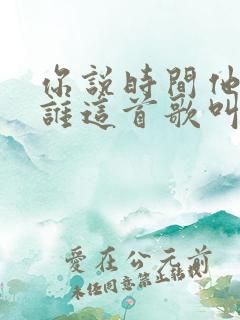 你說時間他
誰這首歌叫
愛在公元前
未任同意禁止轉載